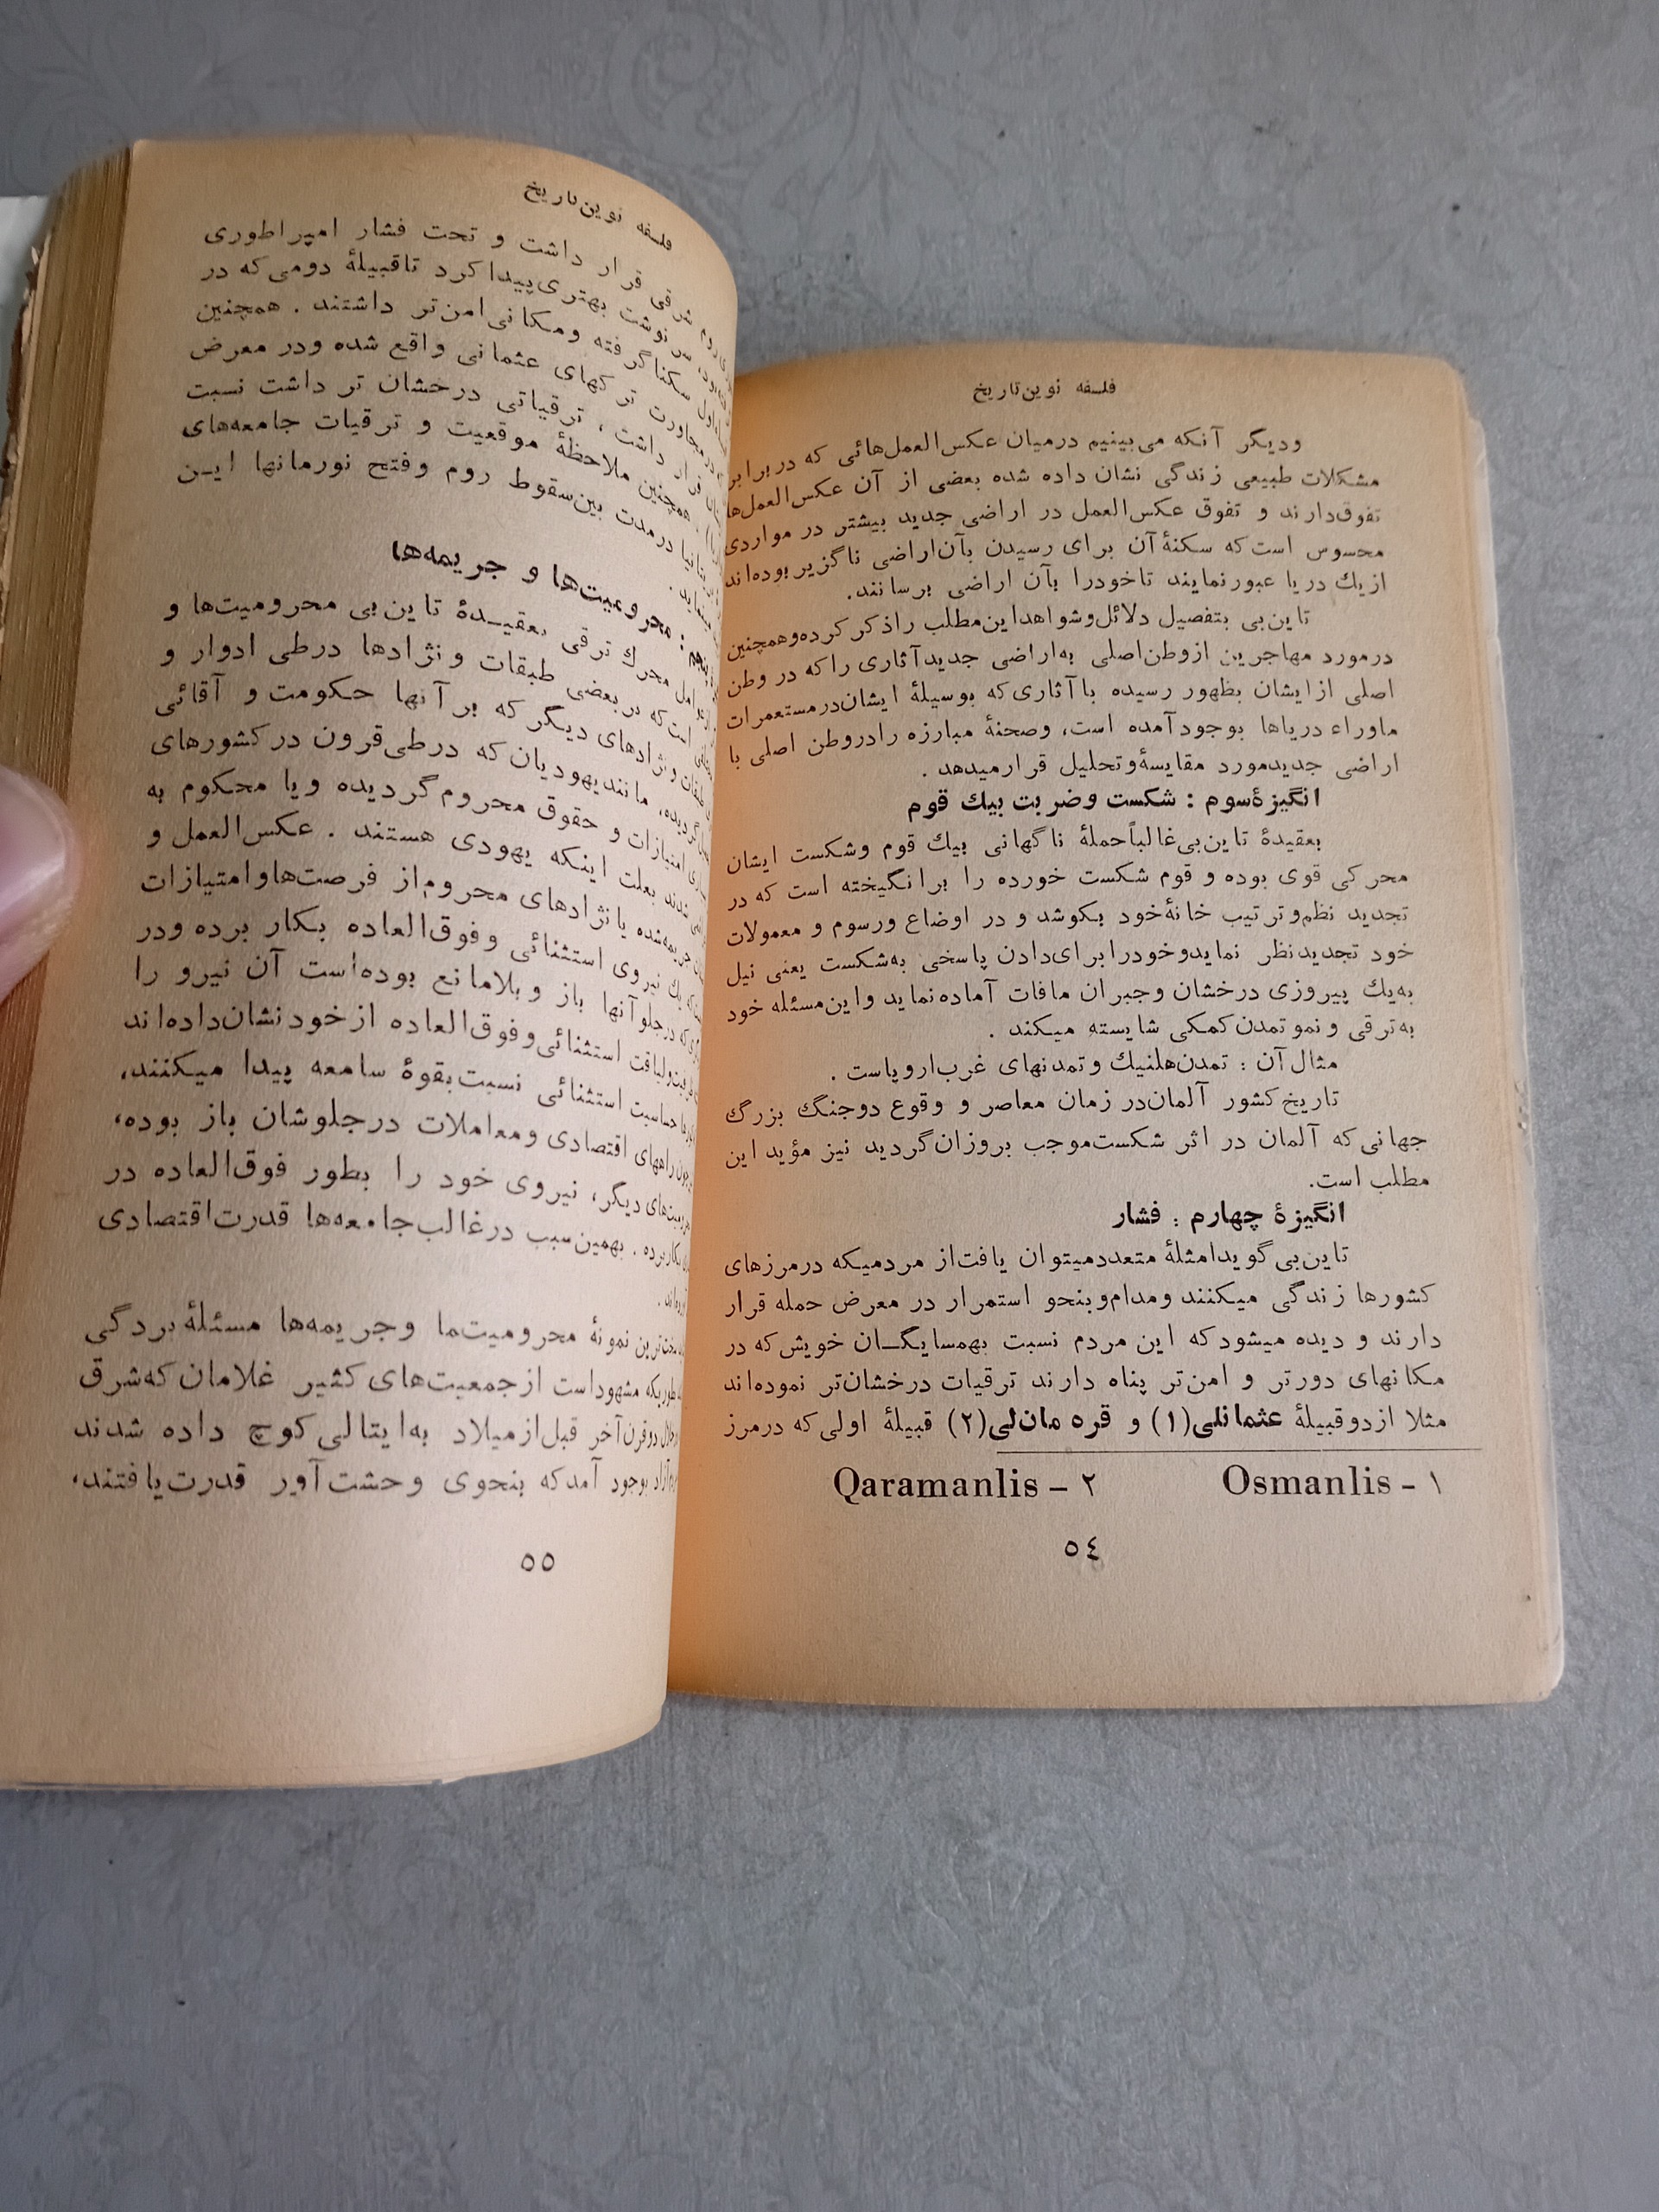 فلسفه نوین تاریخ
ودیگر آنکه می‌بینیم درمیان عکس‌العمل‌هائی که در برابر
مشکلات طبیعی زندگی نشان داده شده بعضی از آن عکس‌العمل‌ها
تفوق‌دارند و تفوق عکس‌العمل در اراضی جدید بیشتر در مواردی
محسوس است که سکنهٔ آن برای رسیدن بآن‌اراضی ناگزیر بوده‌اند
ازیك دریا عبورنمایند تاخودرا بآن اراضی برسانند.
تاین‌بی بتفصیل دلائل‌وشواهداین‌مطلب راذکر کرده‌وهمچنین
درمورد مهاجرین ازوطن‌اصلی به‌اراضی جدیدآثاری راکه در وطن
اصلی ازایشان بظهور رسیده باآثاری‌که بوسیلهٔ ایشان‌درمستعمرات
ماوراء دریاها بوجودآمده است، وصحنهٔ مبارزه رادروطن اصلی با
اراضی جدیدمورد مقایسهٔ‌وتحلیل قرارمیدهد .
انگیزهٔ‌سوم : شکست وضربت بیك قوم
بعقیدهٔ تاین‌بی‌غالباًحملهٔ ناگهانی بیك قوم وشکست ایشان
محرکی قوی بوده و قوم شکست خورده را برانگیخته است که در
تجدید نظم‌وترتیب خانهٔ‌خود بکوشد و در اوضاع ورسوم و معمولات
خود تجدیدنظر نمایدوخودرابرای‌دادن پاسخی به‌شکست یعنی نیل
به‌یك پیروزی درخشان وجبران مافات آماده‌نماید واین‌مسئله خود
به‌ترقی و نمو تمدن‌کمکی شایسته میکند .
مثال آن : تمدن‌هلنیك وتمدنهای غرب‌اروپاست .
تاریخ‌کشور آلمان‌در زمان معاصر و وقوع دوجنگ بزرگ
جهانی‌که آلمان در اثر شکست‌موجب بروزان‌گردید نیز مؤید این
مطلب است.
انگیزهٔ چهارم : فشار
تاین‌بی‌گویدامثلهٔ متعددمیتوان یافت‌از مردمیکه درمرزهای
کشورها زندگی میکنند ومدام‌وبنحو استمرار در معرض حمله قرار
دارند و دیده میشودکه این مردم نسبت بهمسایگـان خویش‌که در
مکانهای دورتر و امن‌تر پناه دارند ترقیات درخشان‌تر نموده‌اند
مثلا ازدوقبیلهٔ عثمانلی(۱) و قره مان‌لی(۲) قبیلهٔ اولی‌که درمرز
۱ - Osmanlis ۲ - Qaramanlis
٥٤
فلسفه نوین‌تاریخ
روم شرقی قرار داشت و تحت فشار امپراطوری
سرنوشت بهتری‌پیداکرد تاقبیلهٔ دومی‌که در
سکناگرفته ومکانی‌امن‌تر داشتند . همچنین
درمجاورت ترکهای عثمانی واقع شده ودر معرض
قرار داشت ، ترقیاتی درخشان تر داشت نسبت
همچنین ملاحظهٔ موقعیت و ترقیات جامعه‌های
درمدت بین‌سقوط روم وفتح نورمانها ایـن
محرومیت‌ها و جریمه‌ها
عوامل محرك ترقی بعقیـدهٔ تاین‌بی محرومیت‌ها و
است‌که در بعضی طبقات ونژادها درطی ادوار و
طبقات ونژادهای دیگرکه برآنها حکومت و آقائی
گردیده، مانندیهودیان‌که درطی‌قرون درکشورهای
امتیازات و حقوق محروم‌گردیده ویا محکوم به
شدند بعلت اینکه یهودی هستند . عکس‌العمل و
جریمه‌شده یانژادهای محروم‌از فرصت‌هاوامتیازات
یك نیروی استثنائی وفوق‌العاده بکار برده ودر
که درجلوآنها باز وبلامانع بوده‌است آن نیرو را
ولیاقت استثنائی‌وفوق‌العاده ازخودنشان‌داده‌اند
حساسیت استثنائی نسبت‌بقوهٔ سامعه پیدا میکنند،
چون راههای اقتصادی ومعاملات درجلوشان باز بوده،
دیگر، نیروی خود را بطور فوق‌العاده در
بکاربرده . بهمین‌سبب درغالب‌جامعه‌ها قدرت‌اقتصادی
نمونهٔ محرومیت‌ما وجریمه‌ها مسئلهٔ بردگی
بطوریکه مشهوداست ازجمعیت‌های کثیر غلامان که‌شرق
دوقرن‌آخر قبل‌ازمیلاد به‌ایتالی‌کوچ داده شدند
بوجود آمدکه بنحوی وحشت‌آور قدرت‌یافتند،
٥٥